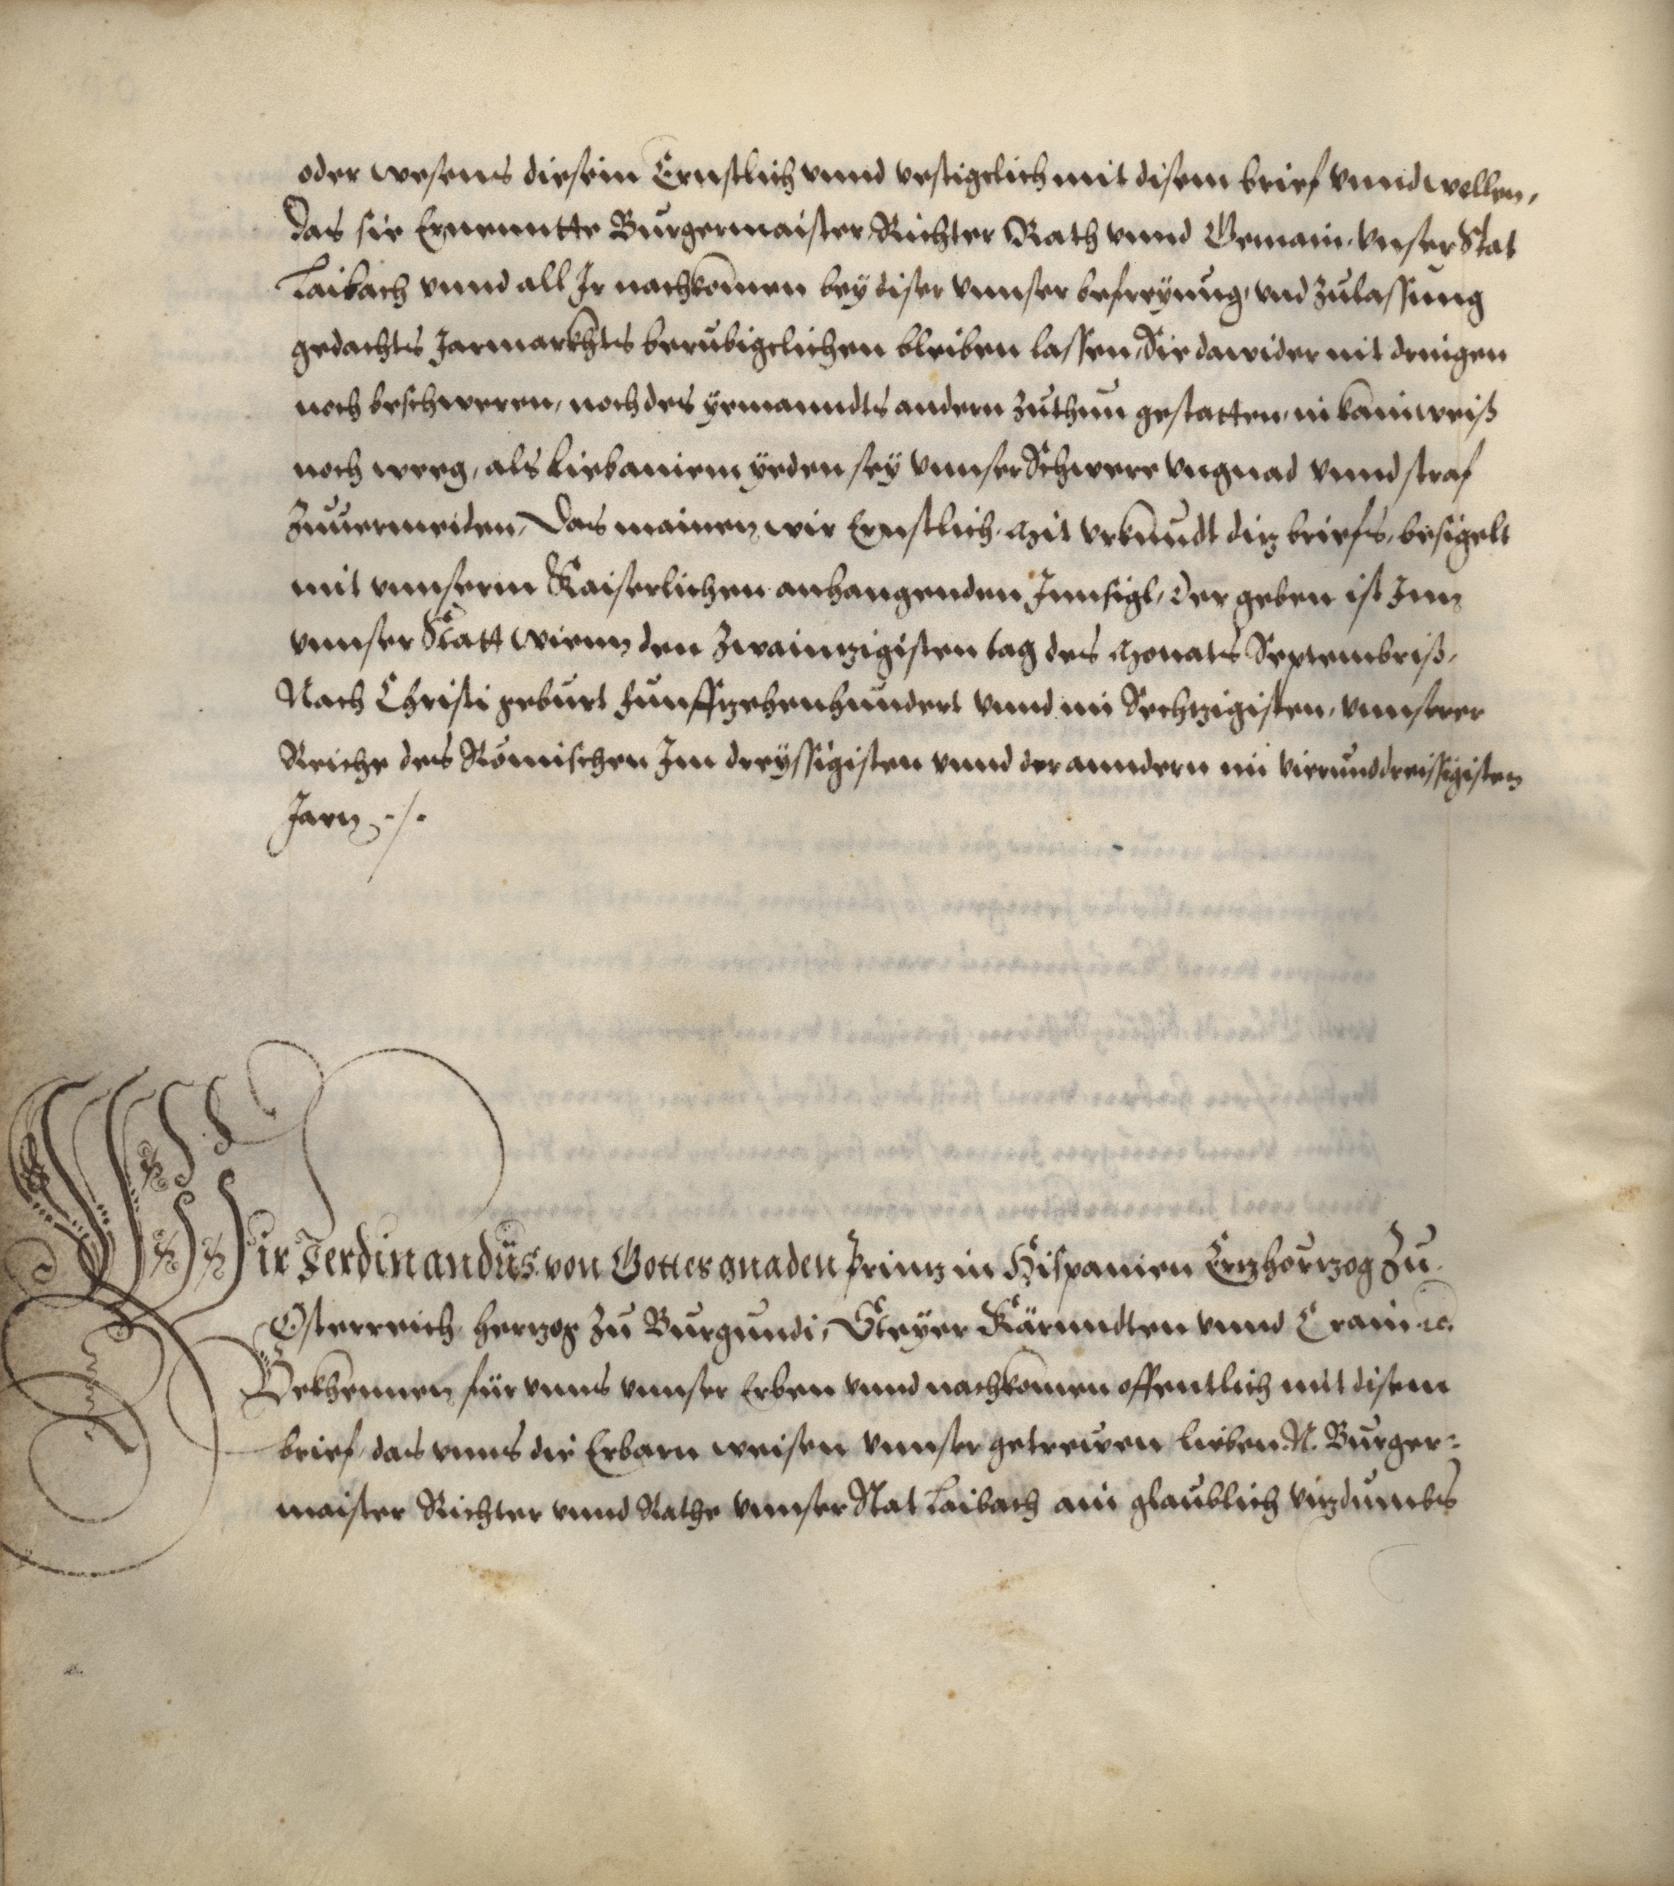 oder wesens die sein Ernstlich vnnd vestigclich mit disem brief vnnd wellen,
das sie Ernenntte Burgermaister, Richter Rath vnnd Gemain, vnser Stat
Laibach vnnd all Ir nachkomen bey diser vnnser befreyung, vnd zulassung
gedachts Jarmarkhts berubigclichen bleiben lassen, Sie dawider nit dringen
noch beschweren, noch des yemanndts andern zuthun gestatten, in kain weiß
noch weeg, als lieb ainem yeden sey vnnser Schwere vngnad vnnd straf
zuuermeiden, Das mainen wir Ernstlich. Mit vrkundt ditz briefs, besigelt
mit vnnserm Kaiserlichen anhangenden Innsigl, Der geben ist Inn
vnnser Statt Wienn den Zwaintzigisten tag des Monats Septembris,
Nach Christi geburt funffzehenhundert vnnd im Sechtzigisten, vnnserer
Reiche des Römischen Im dreyssigisten vnnd der anndern im vierunddreissigisten
Jarn ./.
Wir Ferdinandus von Gottes gnaden Printz in Hispanien Ertzhertzog Zu
Osterreich, Hertzog zu Burgundi, Steyer Kärnndten vnnd Crain etc.
Bekhennen für vnns vnnser Erben vnnd nachkomen offentlich mit disem
brief, das vnns die Erbarn weisen vnnser getrewen lieben N. Burger=
maister Richter vnnd Rathe vnnser Stat Laibach ain glaublich vitzdumbs